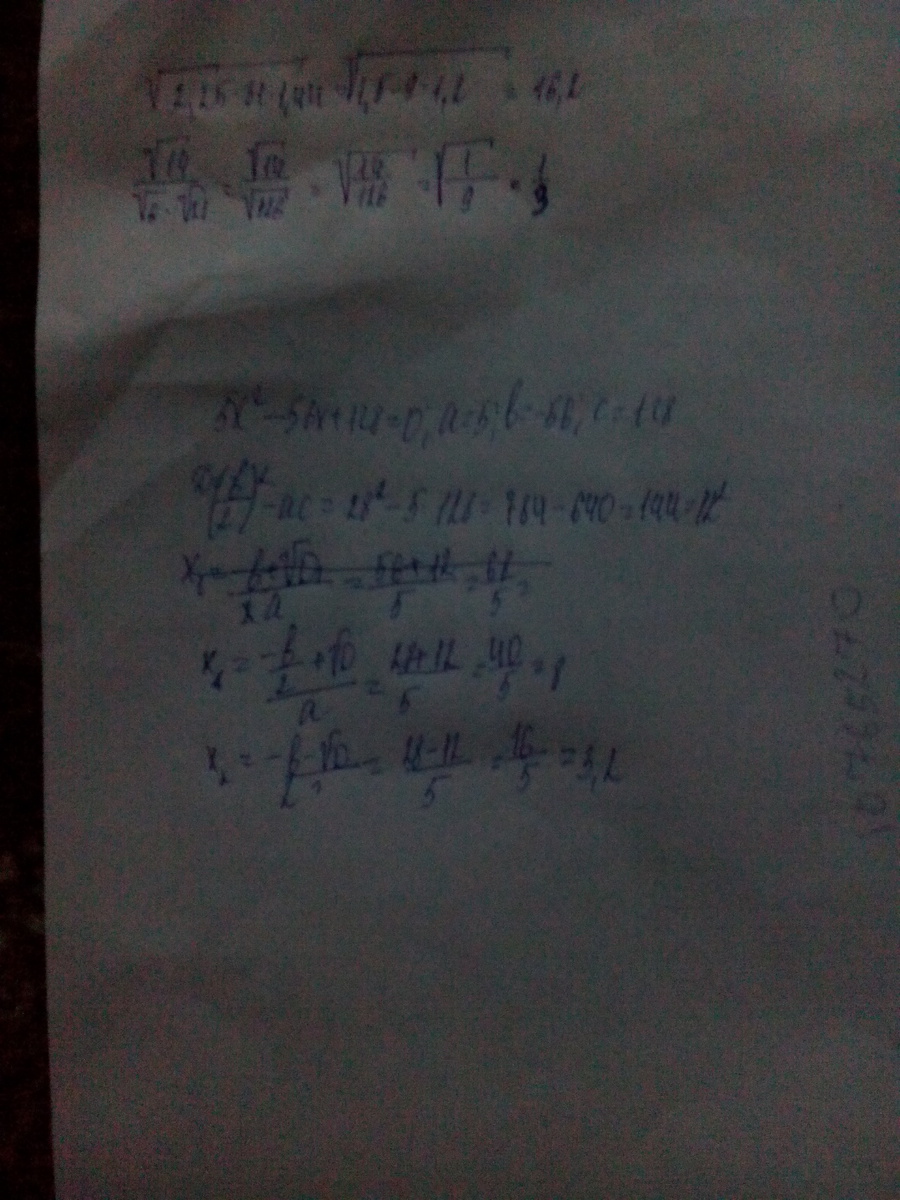 √2,25·81·1,44 = √1,5·9·1,2 = 16,2
√14/(√6·√21) = √14/√126 = √(14/126) = √(1/9) = 1/3
5x² - 56x + 128 = 0; a = 5; b = -56; c = 128
(b/2)² - ac = 28² - 5·128 = 784 - 640 = 144 = 12²
= (56+12)/5 = 68/5 =
x₁ = (-b/2 + √D)/a = (28+12)/5 = 40/5 = 8
= (28-12)/5 = 16/5 = 3,2